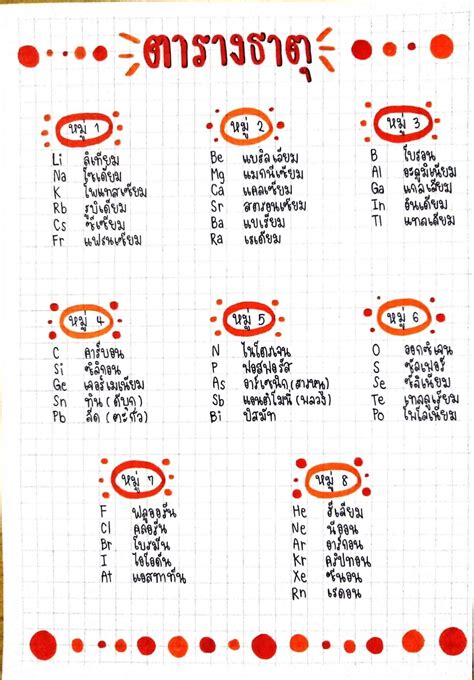 ตารางธาตุ
หมู่ 1
Li ลิเทียม
Na โซเดียม
K โพแทสเซียม
Rb รูบิเดียม
Cs ซีเซียม
Fr แฟรนเซียม
หมู่ 2
Be เบริลเลียม
Mg แมกนีเซียม
Ca แคลเซียม
Sr สตรอนเซียม
Ba แบเรียม
Ra เรเดียม
หมู่ 3
B โบรอน
Al อะลูมิเนียม
Ga แกลเลียม
In อินเดียม
Tl แทลเลียม
หมู่ 4
C คาร์บอน
Si ซิลิกอน
Ge เจอร์เมเนียม
Sn ทิน (ดีบุก)
Pb ลีด (ตะกั่ว)
หมู่ 5
N ไนโตรเจน
P ฟอสฟอรัส
As อาร์เซนิก (สารหนู)
Sb แอนติโมนี (พลวง)
Bi บิสมัท
หมู่ 6
O ออกซิเจน
S ซัลเฟอร์
Se ซีลีเนียม
Te เทลลูเรียม
Po โพโลเนียม
หมู่ 7
F ฟลูออรีน
Cl คลอรีน
Br โบรมีน
I ไอโอดีน
At แอสทาทีน
หมู่ 8
He ฮีเลียม
Ne นีออน
Ar อาร์กอน
Kr คริปทอน
Xe ซีนอน
Rn เรดอน